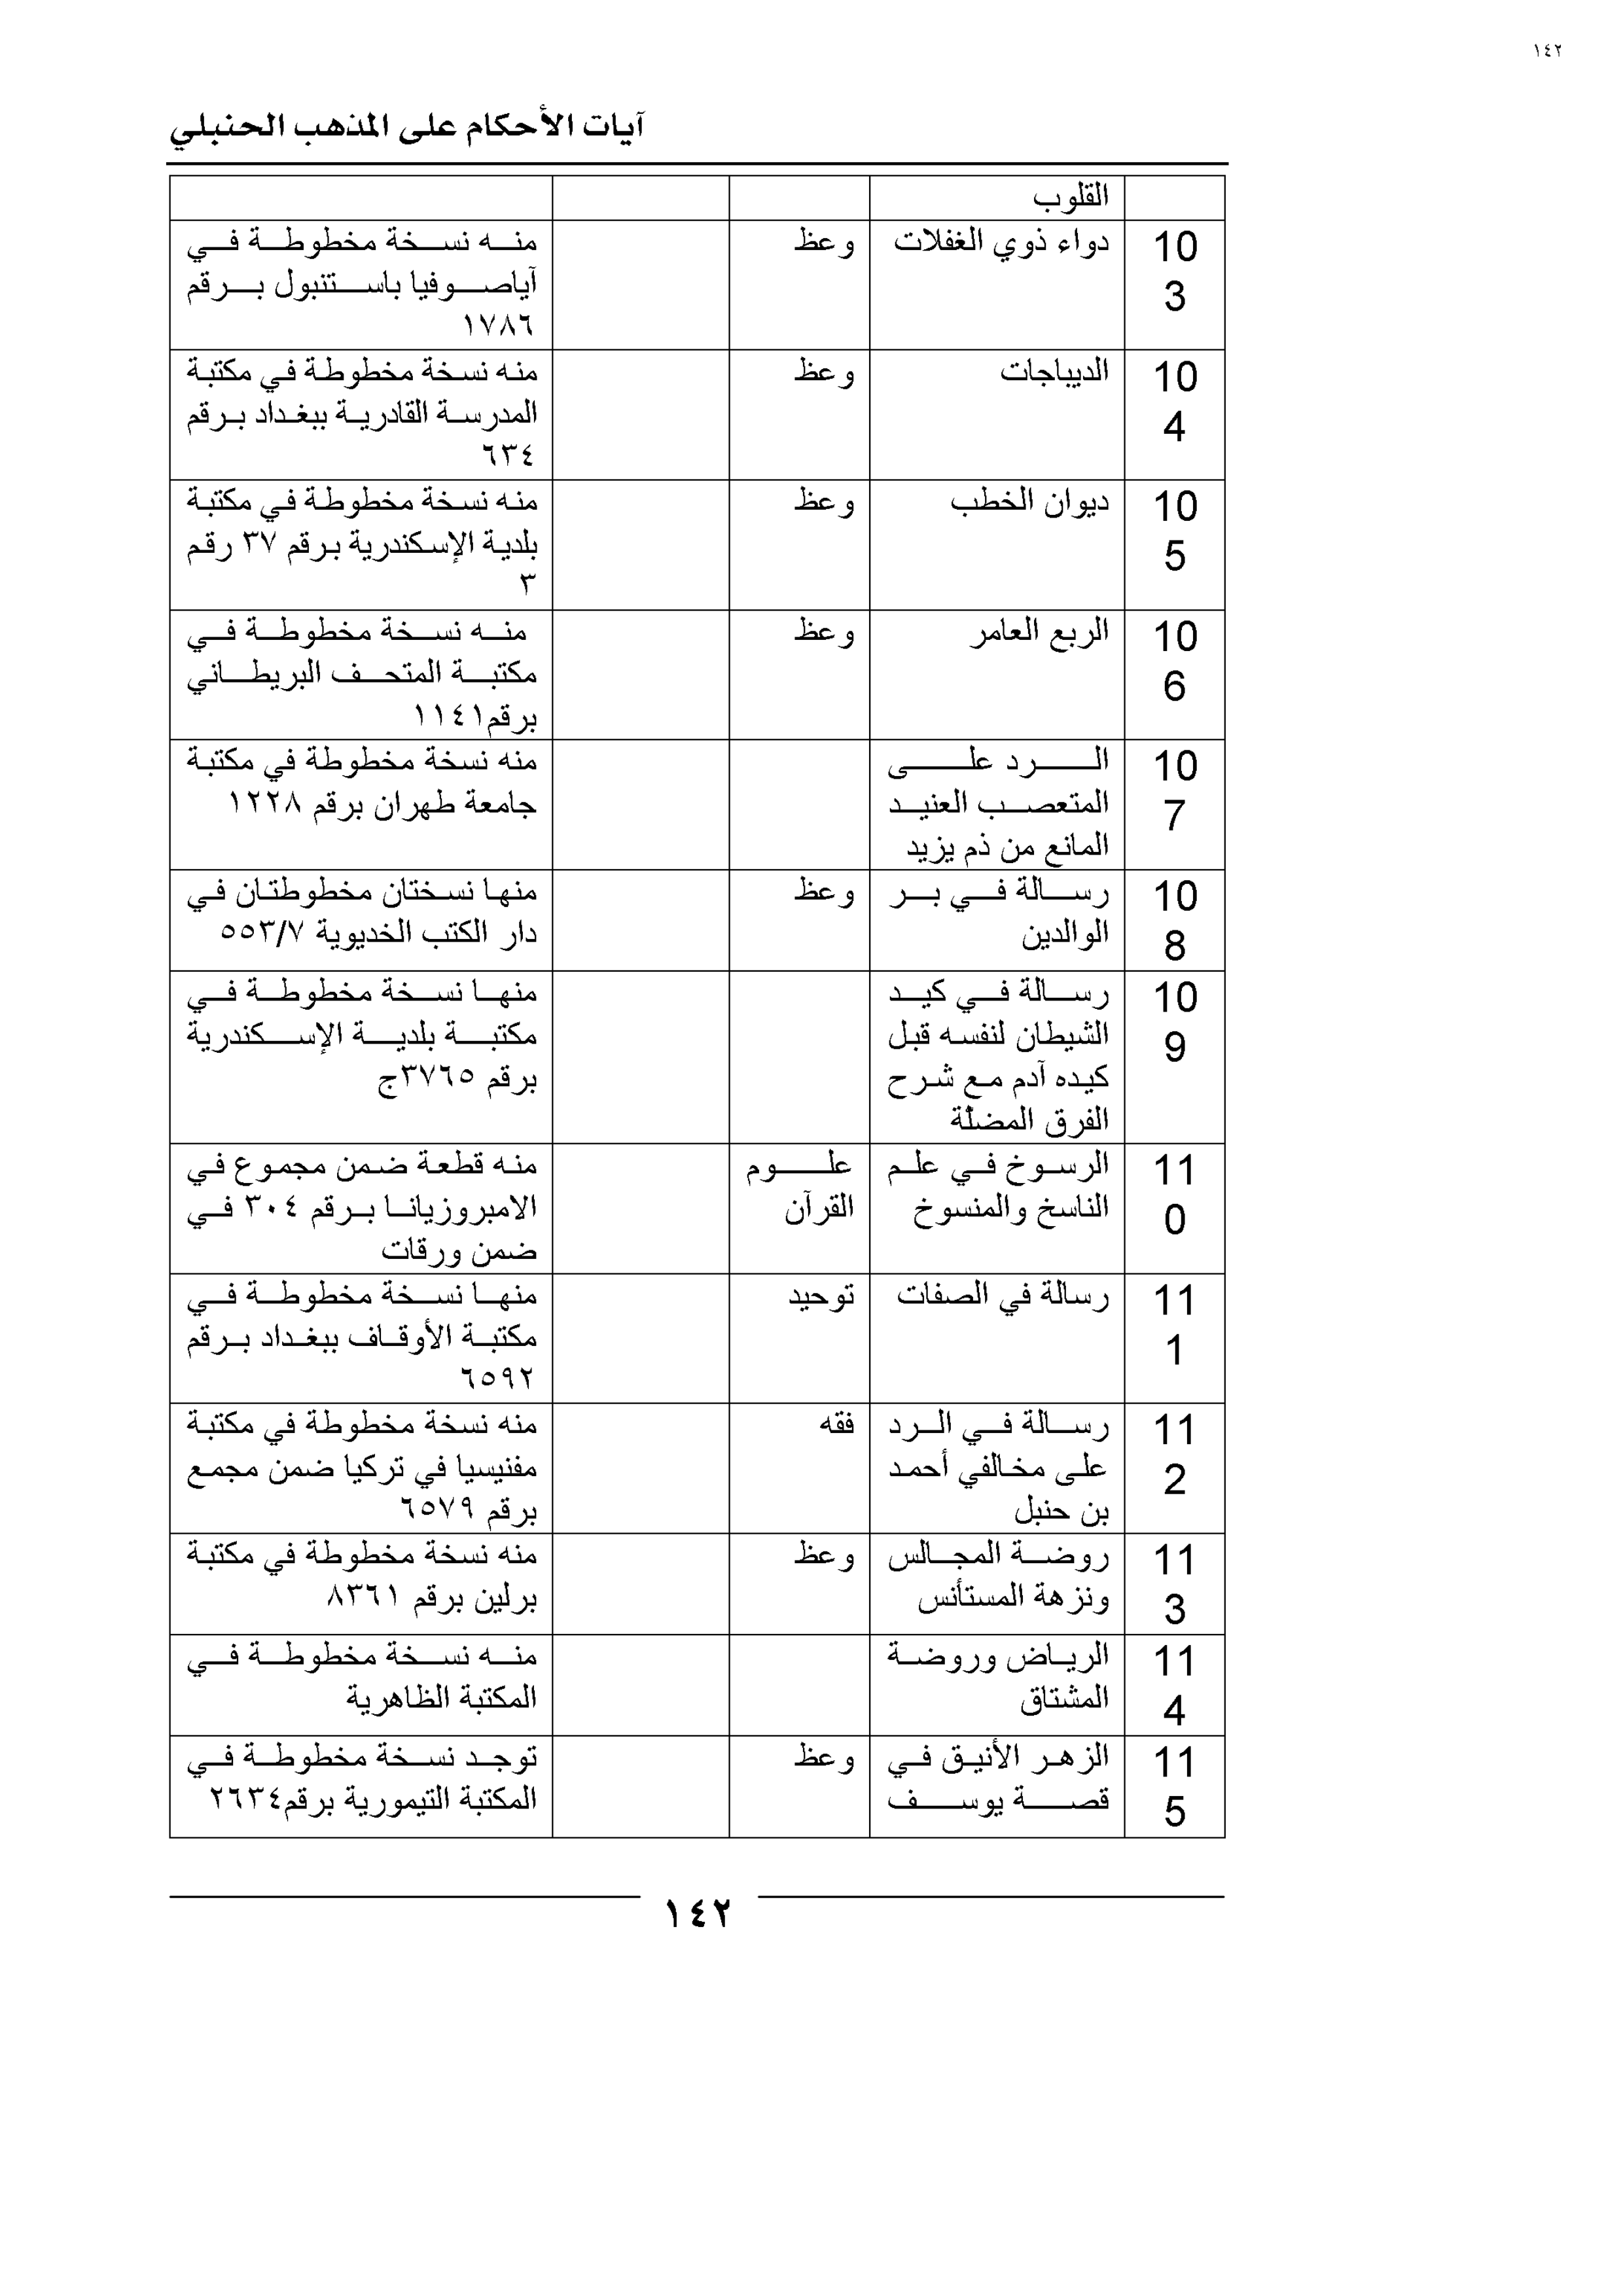 ١٤٢
آيات الأحكام على المذهب الحنبلي
القلوب
10
3
دواء ذوي الغفلات
وعظ
منه نسخة مخطوطة في
آياصوفيا باستنبول برقم
١٧٨٦
10
4
الديباجات
وعظ
منه نسخة مخطوطة في مكتبة
المدرسة القادرية ببغداد برقم
٦٣٤
10
5
ديوان الخطب
وعظ
منه نسخة مخطوطة في مكتبة
بلدية الإسكندرية برقم ٣٧ رقم
٣
10
6
الربع العامر
وعظ
منه نسخة مخطوطة في
مكتبة المتحف البريطاني
برقم١١٤١
10
7
الرد على
المتعصب العنيد
المانع من ذم يزيد
منه نسخة مخطوطة في مكتبة
جامعة طهران برقم ١٢٢٨
10
8
رسالة في بر
الوالدين
وعظ
منها نسختان مخطوطتان في
دار الكتب الخديوية ٥٥٣/٧
10
9
رسالة في كيد
الشيطان لنفسه قبل
كيده آدم مع شرح
الفرق المضلة
منها نسخة مخطوطة في
مكتبة بلدية الإسكندرية
برقم ٣٧٦٥ج
11
0
الرسوخ في علم
الناسخ والمنسوخ
علوم
القرآن
منه قطعة ضمن مجموع في
الامبروزيانا برقم ٣٠٤ في
ضمن ورقات
11
1
رسالة في الصفات
توحيد
منها نسخة مخطوطة في
مكتبة الأوقاف ببغداد برقم
٦٥٩٢
11
2
رسالة في الرد
على مخالفي أحمد
بن حنبل
فقه
منه نسخة مخطوطة في مكتبة
مفنيسيا في تركيا ضمن مجمع
برقم ٦٥٧٩
11
3
روضة المجالس
ونزهة المستأنس
وعظ
منه نسخة مخطوطة في مكتبة
برلين برقم ٨٣٦١
11
4
الرياض وروضة
المشتاق
منه نسخة مخطوطة في
المكتبة الظاهرية
11
5
الزهر الأنيق في
قصة يوسف
وعظ
توجد نسخة مخطوطة في
المكتبة التيمورية برقم٢٦٣٤
١٤٢